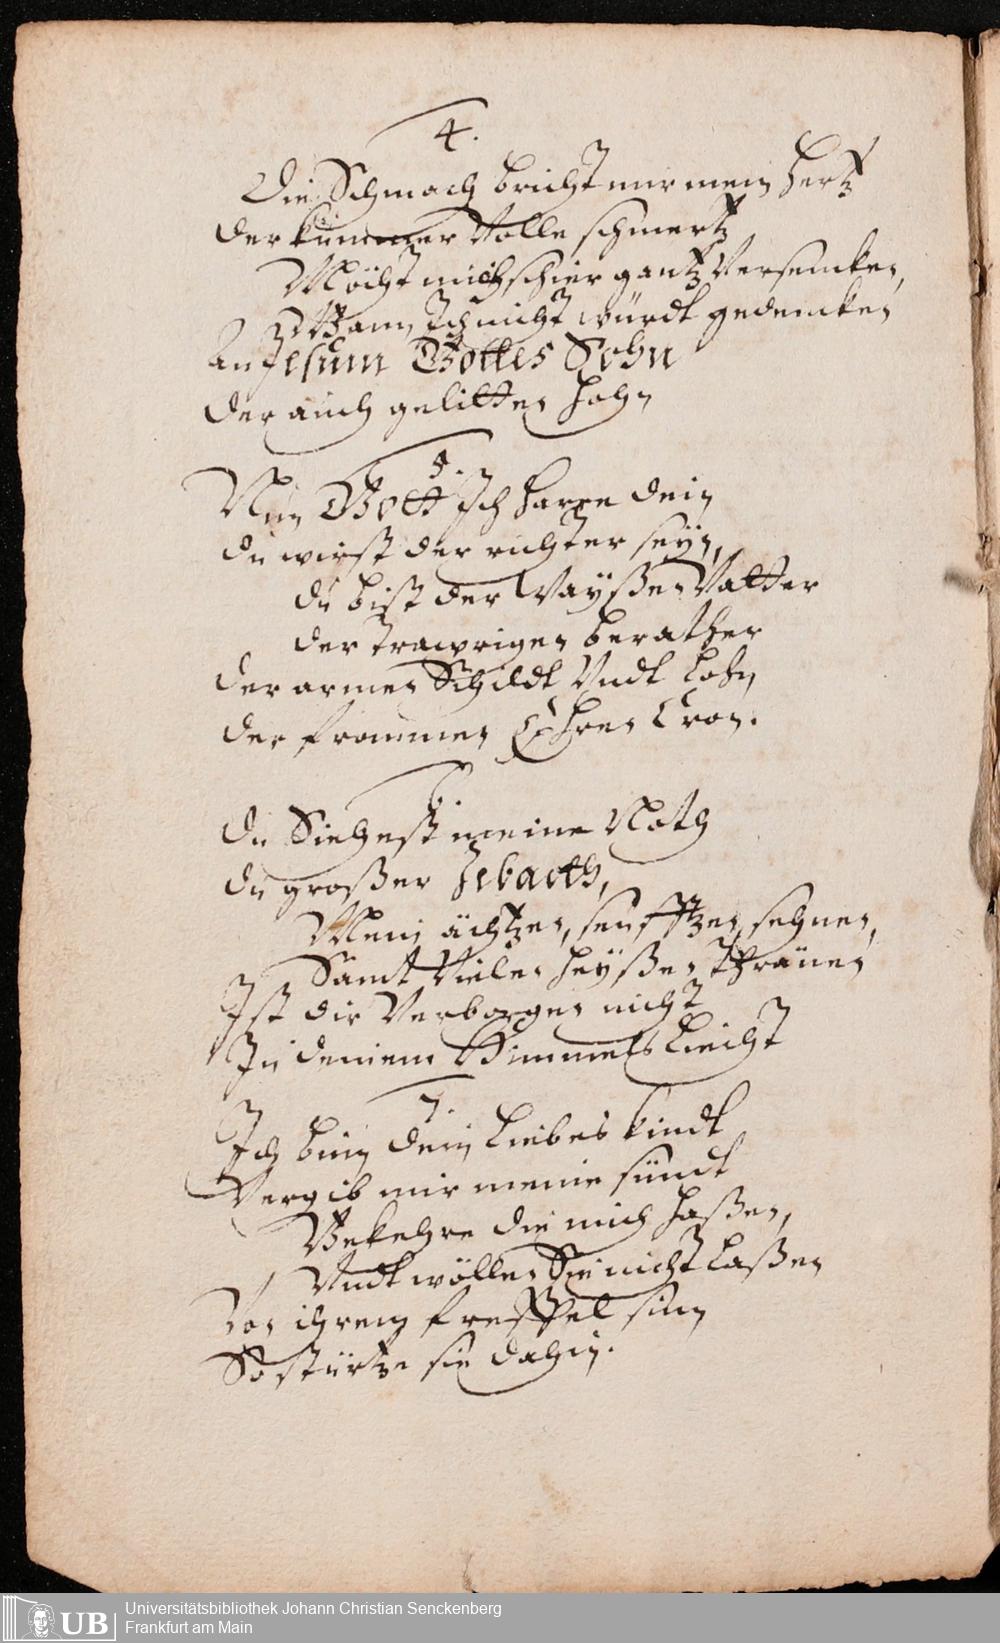 4.
Die Schmach bricht mir mein Hertz
der kummer Volle schmertz
Möcht mich schier gantz Versencken,
Wann Ich nicht würdt gedencken
An Jesum Gottes Sohn
der auch gelitten Hohn
5.
Nun Gott Ich harre dein
du wirst der richter seyn,
du bist der Wayßen Vatter
der trawrigen berather
der armen Schildt Vndt Lohn
der frommen Ehren Cron.
6.
du Siehest meine Noth
du großer Zebaoth,
Mein ächtzen, seufftzen, sehnen,
Samt Vielen heyßen Thränen
Ist dir Verborgen nicht
In deinem Himmels Liecht
7.
Ich binn dein Liebes kindt
Vergib mir meine sündt
Bekehre die mich haßen,
Vndt wöllen Sie nicht laßen
Von ihrem freffel sinn
So stürtze sie dahin.
UB
Universitätsbibliothek Johann Christian Senckenberg
Frankfurt am Main